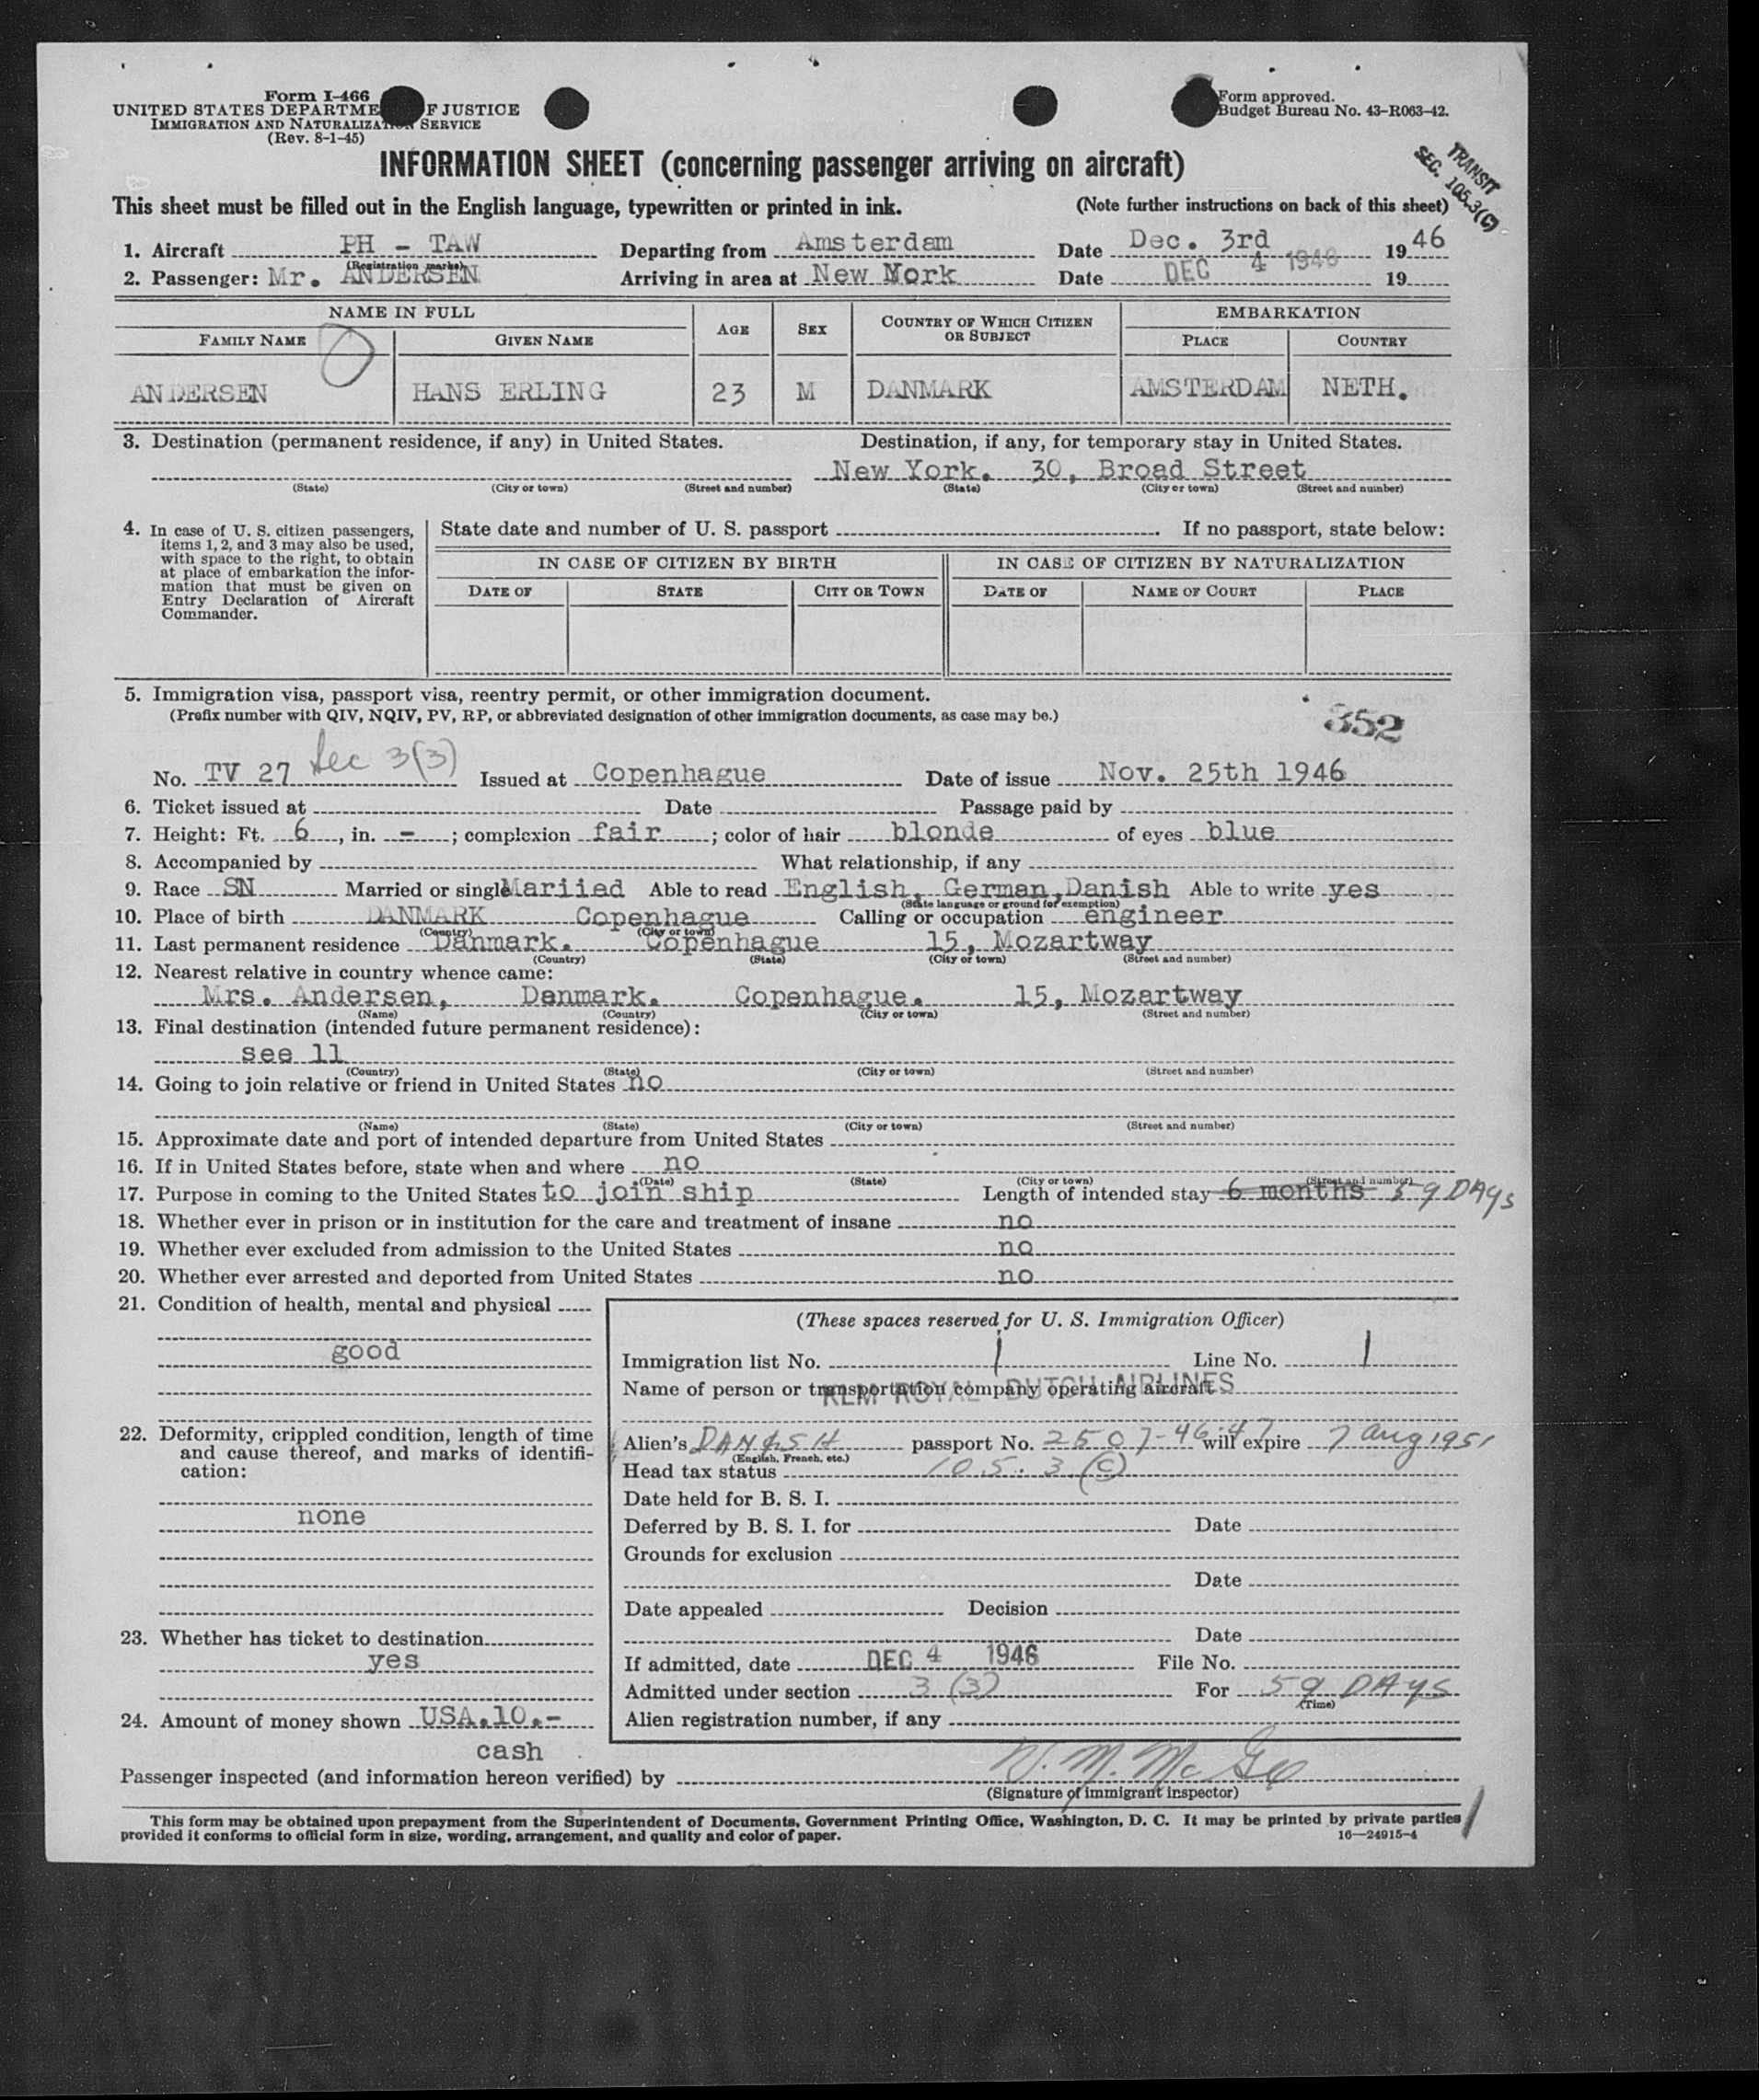 Form I-466
UNITED STATES DEPARTME F JUSTICE
IMMIGRATION AND NATURALIZATION SERVICE
(Rev. 8-1-45)
Form approved.
Budget Bureau No. 43-R063-42.
TRANSIT
SEC. 105.3(C)
INFORMATION SHEET (concerning passenger arriving on aircraft)
This sheet must be filled out in the English language, typewritten or printed in ink. (Note further instructions on back of this sheet)
1. Aircraft PH - TAW Departing from Amsterdam Date Dec. 3rd 1946
(Registration marks)
2. Passenger: Mr. ANDERSEN Arriving in area at New Mork Date DEC 4 1946 19
NAME IN FULL AGE SEX COUNTRY OF WHICH CITIZEN OR SUBJECT EMBARKATION
FAMILY NAME GIVEN NAME PLACE COUNTRY
ANDERSEN HANS ERLING 23 M DANMARK AMSTERDAM NETH.
3. Destination (permanent residence, if any) in United States. Destination, if any, for temporary stay in United States.
New York. 30, Broad Street
(State) (City or town) (Street and number) (State) (City or town) (Street and number)
4. In case of U. S. citizen passengers, items 1, 2, and 3 may also be used, with space to the right, to obtain at place of embarkation the information that must be given on Entry Declaration of Aircraft Commander.
State date and number of U. S. passport . If no passport, state below:
IN CASE OF CITIZEN BY BIRTH IN CASE OF CITIZEN BY NATURALIZATION
DATE OF STATE CITY OR TOWN DATE OF NAME OF COURT PLACE
5. Immigration visa, passport visa, reentry permit, or other immigration document.
(Prefix number with QIV, NQIV, PV, RP, or abbreviated designation of other immigration documents, as case may be.)
352
No. TV 27 Sec 3(3) Issued at Copenhague Date of issue Nov. 25th 1946
6. Ticket issued at Date Passage paid by
7. Height: Ft. 6, in. -; complexion fair; color of hair blonde of eyes blue
8. Accompanied by What relationship, if any
9. Race SN Married or single Mariied Able to read English, German, Danish Able to write yes
(State language or ground for exemption)
10. Place of birth DANMARK Copenhague Calling or occupation engineer
(Country) (City or town)
11. Last permanent residence Danmark. Copenhague 15, Mozartway
(Country) (State) (City or town) (Street and number)
12. Nearest relative in country whence came:
Mrs. Andersen, Danmark. Copenhague. 15, Mozartway
(Name) (Country) (City or town) (Street and number)
13. Final destination (intended future permanent residence):
see 11
(Country) (State) (City or town) (Street and number)
14. Going to join relative or friend in United States no
(Name) (State) (City or town) (Street and number)
15. Approximate date and port of intended departure from United States
16. If in United States before, state when and where no
(Date) (State) (City or town) (Street and number)
17. Purpose in coming to the United States to join ship Length of intended stay 6 months 59 DAYS
18. Whether ever in prison or in institution for the care and treatment of insane no
19. Whether ever excluded from admission to the United States no
20. Whether ever arrested and deported from United States no
21. Condition of health, mental and physical
good
22. Deformity, crippled condition, length of time and cause thereof, and marks of identification:
none
23. Whether has ticket to destination
yes
24. Amount of money shown USA.10.-
cash
(These spaces reserved for U. S. Immigration Officer)
Immigration list No. 1 Line No. 1
Name of person or transportation company operating aircraft
KLM ROYAL DUTCH AIRLINES
Alien's DANISH passport No. 2507-46.47 will expire 7 Aug 1951
(English, French, etc.)
Head tax status 105.3(C)
Date held for B. S. I.
Deferred by B. S. I. for Date
Grounds for exclusion
Date
Date appealed Decision
Date
If admitted, date DEC 4 1946 File No.
Admitted under section 3 (3) For 59 DAYS
(Time)
Alien registration number, if any
Passenger inspected (and information hereon verified) by W. M. McGee
(Signature of immigrant inspector)
This form may be obtained upon prepayment from the Superintendent of Documents, Government Printing Office, Washington, D. C. It may be printed by private parties
provided it conforms to official form in size, wording, arrangement, and quality and color of paper. 16—24915-4